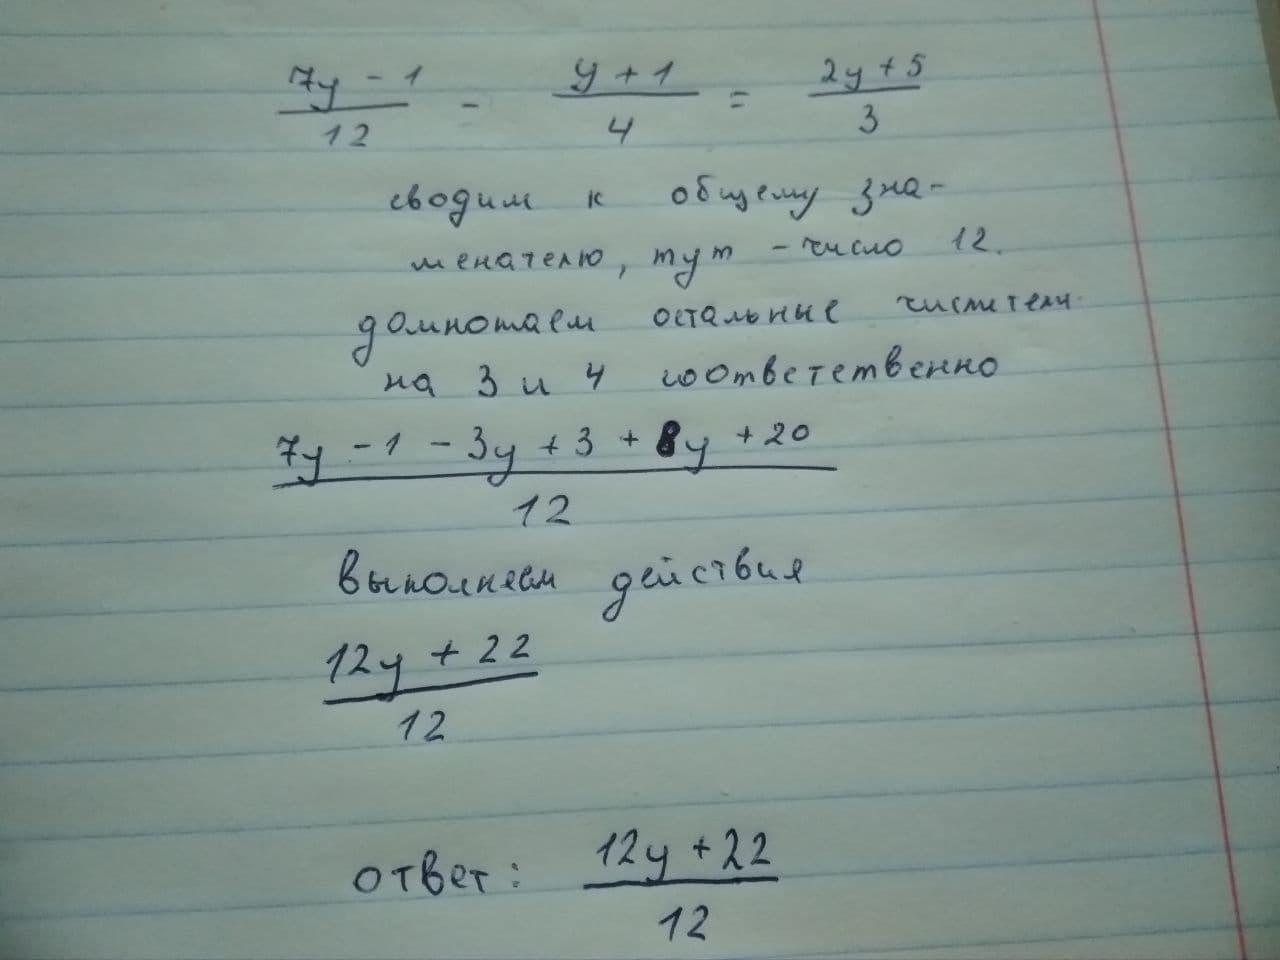 7y - 1 / 12 - y + 1 / 4 = 2y + 5 / 3
сводим к общему зна-
менателю, тут - число 12.
домножаем остальные числители
на 3 и 4 соответственно
7y - 1 - 3y + 3 + 8y + 20 / 12
выполняем действия
12y + 22 / 12
ответ: 12y + 22 / 12